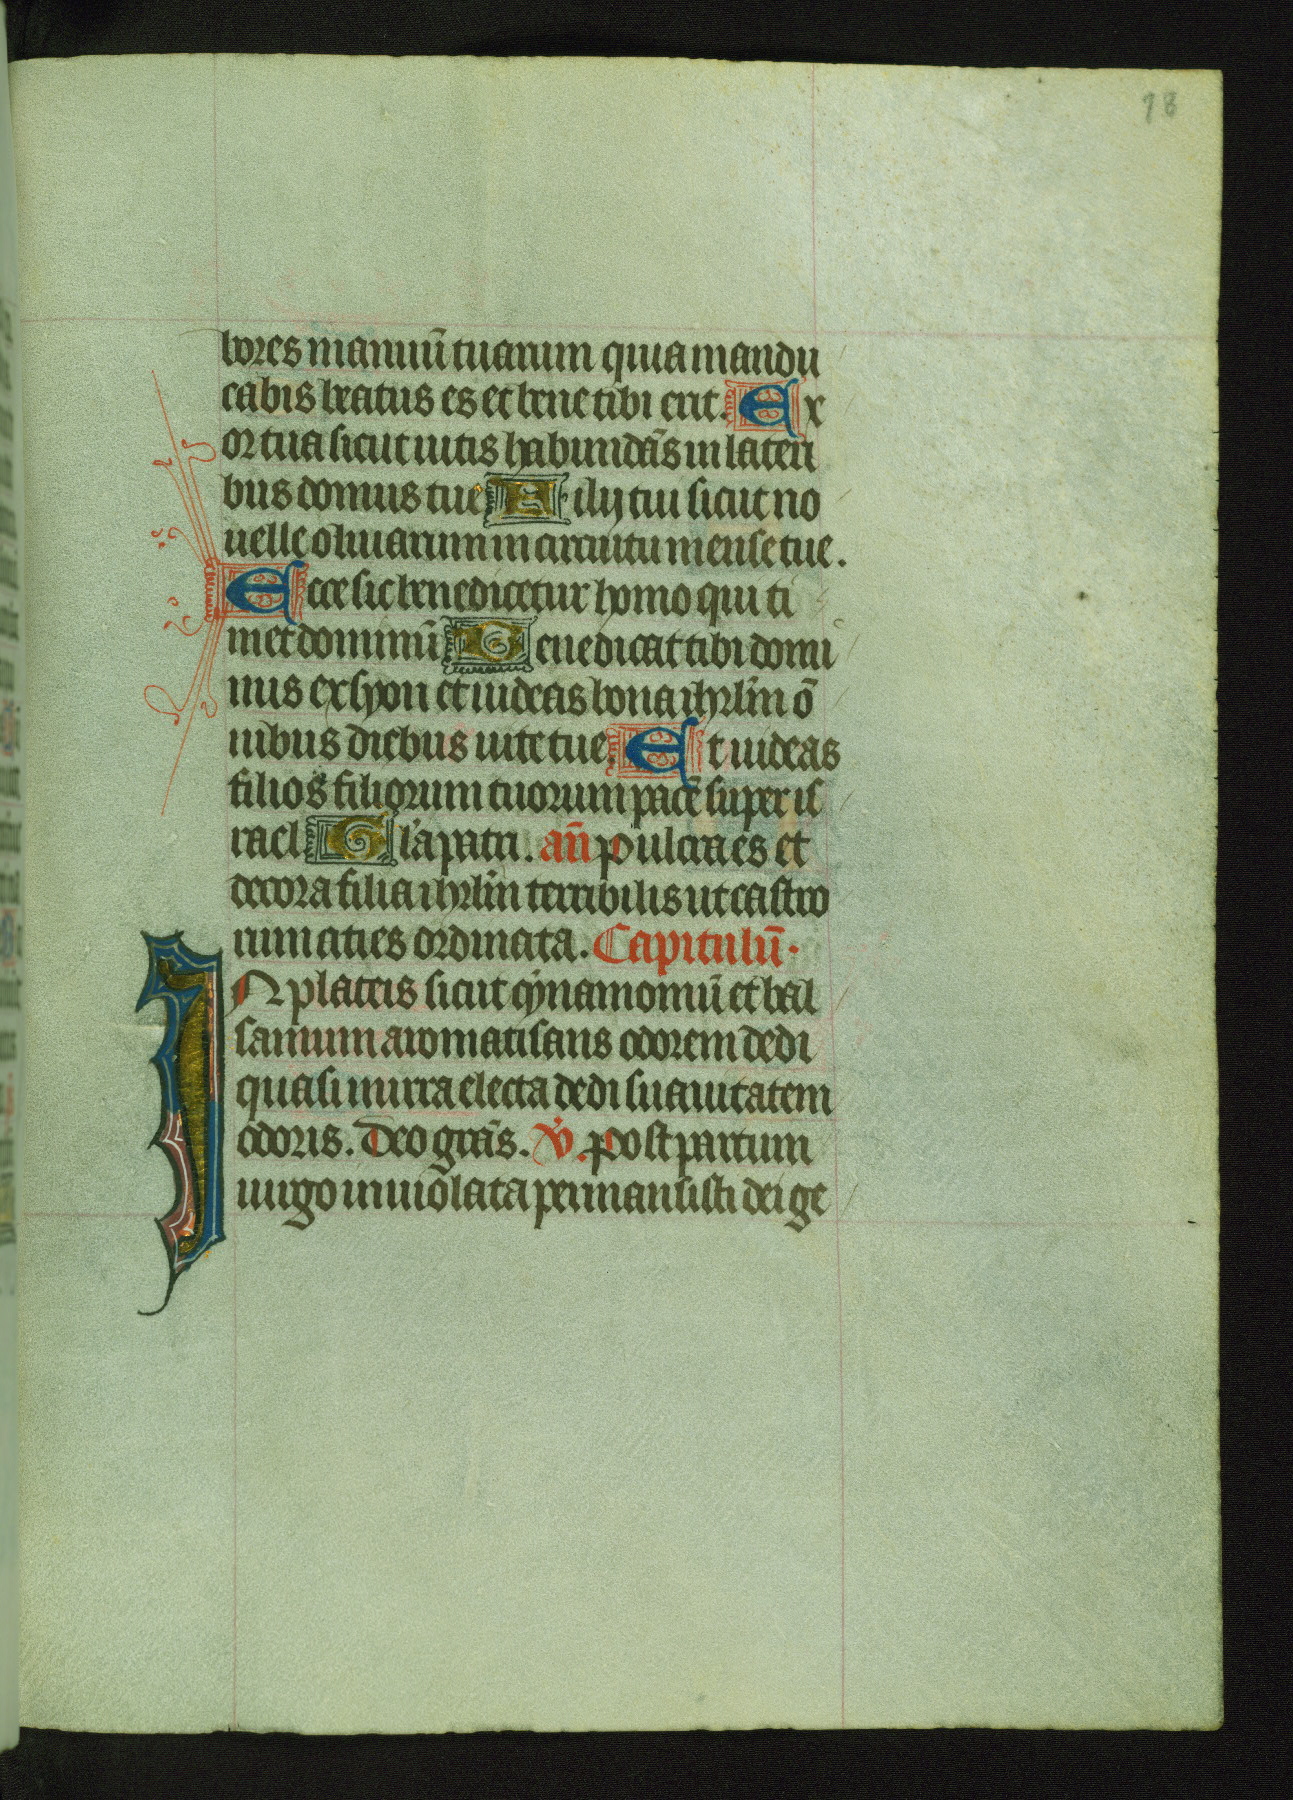 78
bores manuū tuarum quia mandu
cabis beatus es et bene tibi erit. Ex
or tua sicut uitis habundās in lateri
bus domus tue Filij tui sicut no
uelle oliuarum in circuitu mense tue.
Ecce sic benedicetur homo qui ti
met dominū Benedicat tibi domi
nus ex syon et uideas bona ihrlm̄ ō
nibus diebus uite tue. Et uideas
filios filiorum tuorum pacē super is
rael Gl'a patri. an̄ Pulcra es et
decora filia ihrlm̄ terribilis ut castro
rum acies ordinata. Capitulū.
IN plateis sicut cynamomū et bal
samum aromatisans odorem dedi
quasi mirra electa dedi suauitatem
odoris. Deo grās. v̇. Post partum
uirgo inuiolata permansisti dei ge